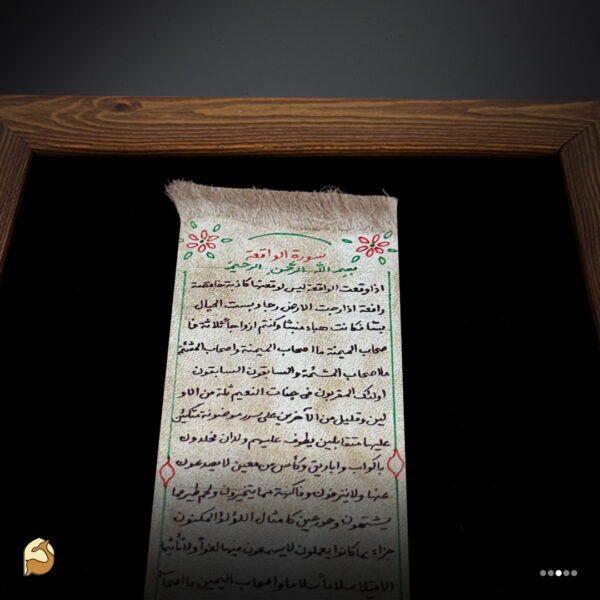 سورة الواقعة
بسم الله الرحمن الرحيم
اذا وقعت الواقعة ليس لوقعتها كاذبة خافضة
رافعة اذا رجت الارض رجا وبست الجبال
بسا فكانت هباء منبثا وكنتم ازواجا ثلاثة فا
صحاب الميمنة ما اصحاب الميمنة واصحاب المشئمة
ما اصحاب المشئمة والسابقون السابقون
اولئك المقربون في جنات النعيم ثلة من الاو
لين وقليل من الآخرين على سرر موضونة متكئين
عليها متقابلين يطوف عليهم ولدان مخلدون
باكواب واباريق وكأس من معين لا يصدعون
عنها ولا ينزفون وفاكهة مما يتخيرون ولحم طير مما
يشتهون وحور عين كامثال اللؤلؤ المكنون
جزاء بما كانوا يعملون لا يسمعون فيها لغوا ولا تأثيما
الا قيلا سلاما سلاما واصحاب اليمين ما اصحا